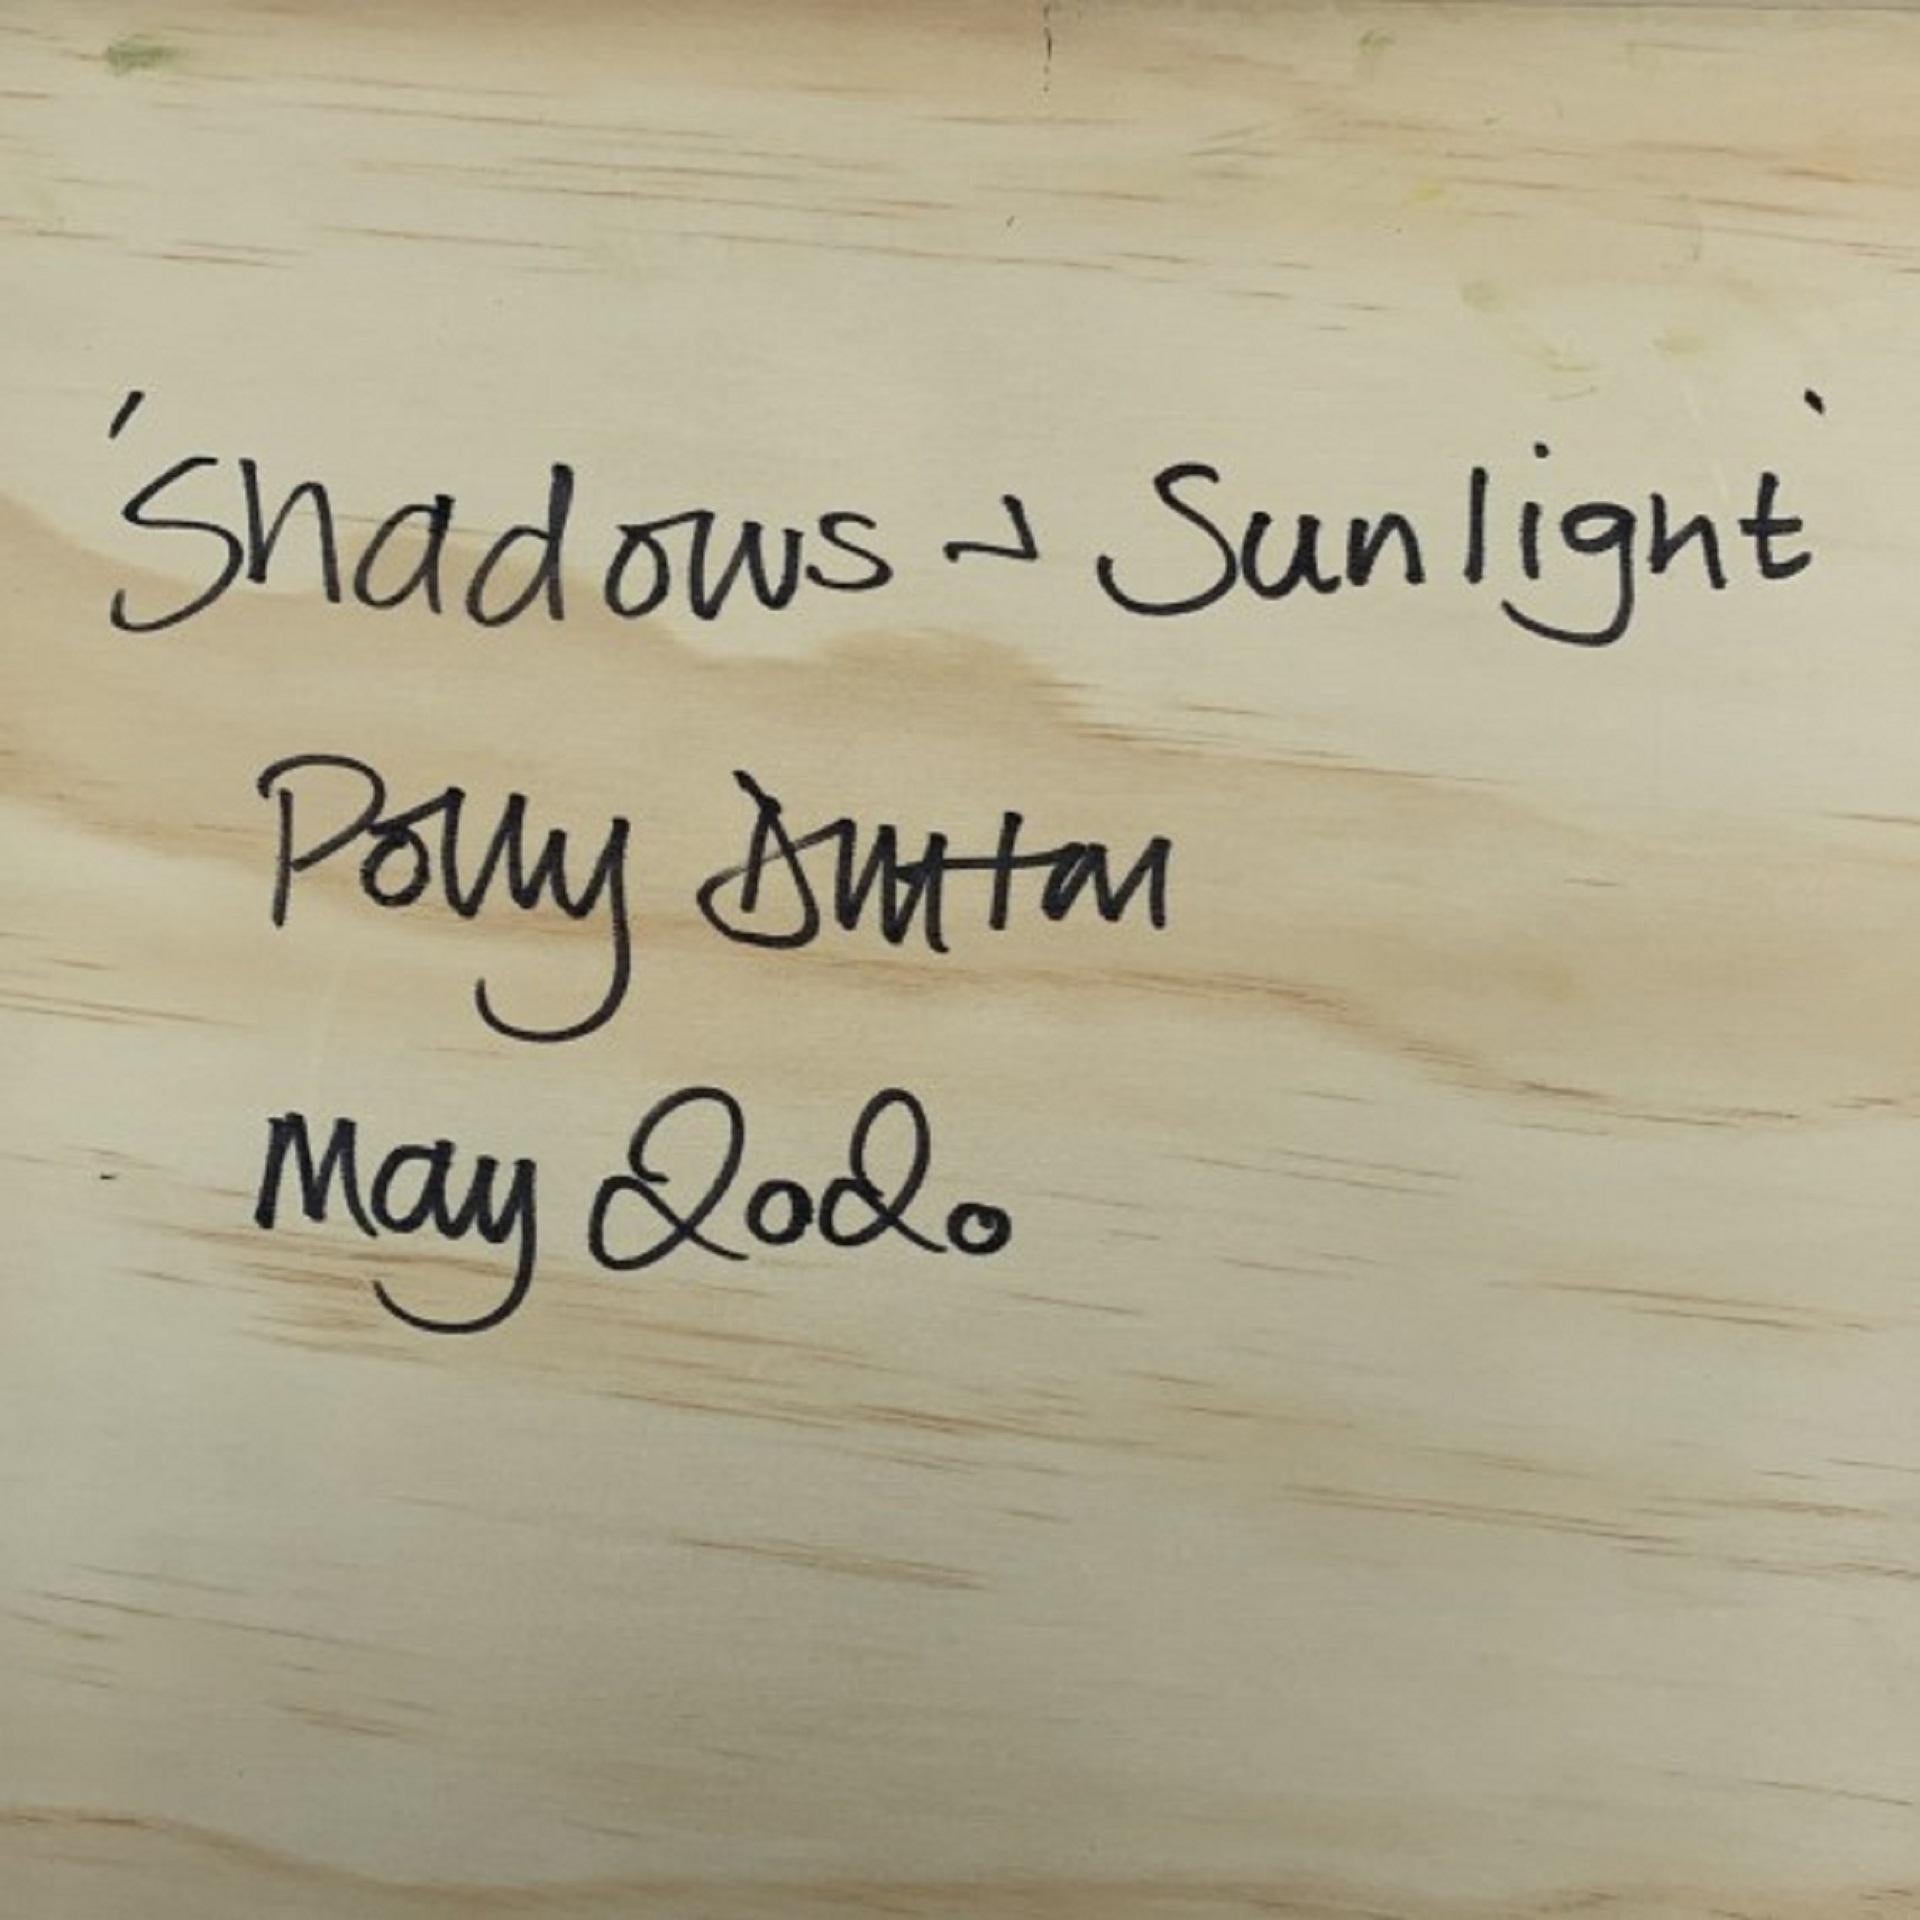 'Shadows + Sunlight'
Polly Dutton
May 2020